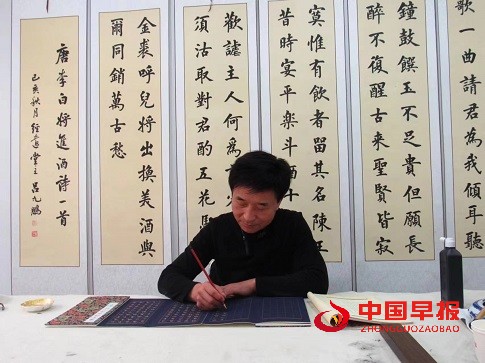 歌一曲請君為我傾耳聽
鐘鼓饌玉不足貴但願長
醉不復醒古來聖賢皆寂
寞惟有飲者留其名陳王
昔時宴平樂斗酒十
歡謔主人何為
須沽取對君酌五花馬
金裘呼兒將出換美酒與
爾同銷萬古愁
唐李白將進酒詩一首
己亥秋月 堂主 呂九鵬
中国早报
ZHONGGUOZAOBAO